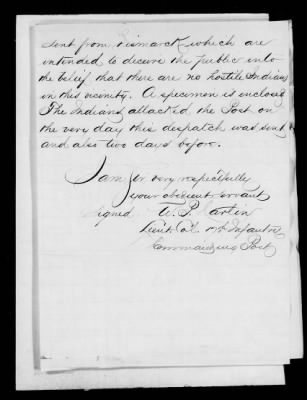 sent from Bismarck which are
intended to deceive the public into
the beleif that there are no hostile Indians
in this vicinity. A specimen is enclosed
The Indians attacked the Post on
the very day this despatch was sent
and also two days before.
I am Sir very respectfully
your obedient servant
signed W. P. Carlin
Lieut. Col. 17th Infantry
Commanding Post